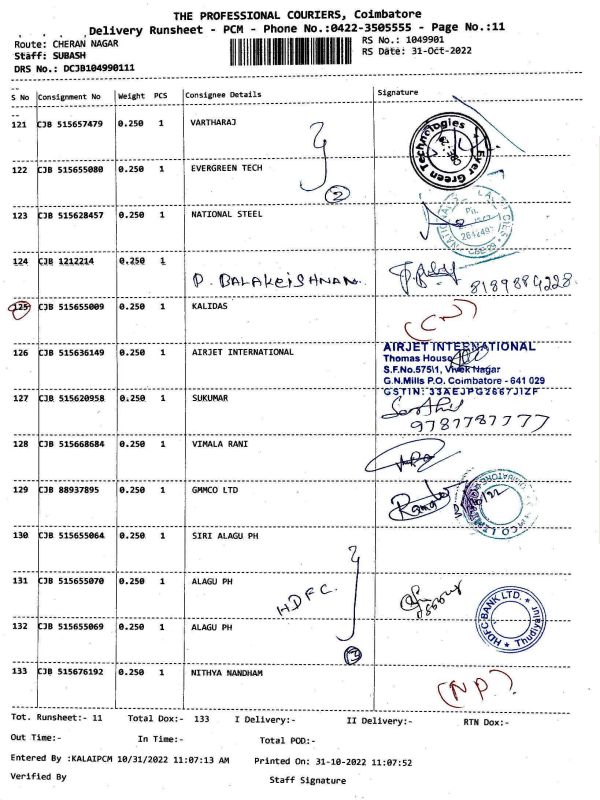 THE PROFESSIONAL COURIERS, Coimbatore
Delivery Runsheet - PCM - Phone No.:0422-3505555 - Page No.:11
Route: CHERAN NAGAR
RS No.: 1049901
Staff: SUBASH
RS Date: 31-Oct-2022
DRS No.: DCJB104990111
S No Consignment No Weight PCS Consignee Details Signature
121 CJB 515657479 0.250 1 VARTHARAJ
Ever Green Technologies
122 CJB 515655080 0.250 1 EVERGREEN TECH
2
123 CJB 515628457 0.250 1 NATIONAL STEEL
124 CJB 1212214 0.250 1
P. BALAKRISHNAN 8189884228
125 CJB 515655009 0.250 1 KALIDAS
(CN)
126 CJB 515636149 0.250 1 AIRJET INTERNATIONAL
AIRJET INTERNATIONAL
Thomas House
S.F.No.575\1, Vivek Nagar
G.N.Mills P.O. Coimbatore - 641 029
GSTIN: 33AEJPG2667J1ZF
127 CJB 515620958 0.250 1 SUKUMAR
9787787777
128 CJB 515668684 0.250 1 VIMALA RANI
129 CJB 88937895 0.250 1 GMMCO LTD
130 CJB 515655064 0.250 1 SIRI ALAGU PH
131 CJB 515655070 0.250 1 ALAGU PH
HDFC.
HDFC BANK LTD. Thudiyalur
132 CJB 515655069 0.250 1 ALAGU PH
3
133 CJB 515676192 0.250 1 NITHYA NANDHAM
(N.P.)
Tot. Runsheet:- 11 Total Dox:- 133 I Delivery:- II Delivery:- RTN Dox:-
Out Time:- In Time:- Total POD:-
Entered By :KALAIPCM 10/31/2022 11:07:13 AM Printed On: 31-10-2022 11:07:52
Verified By Staff Signature